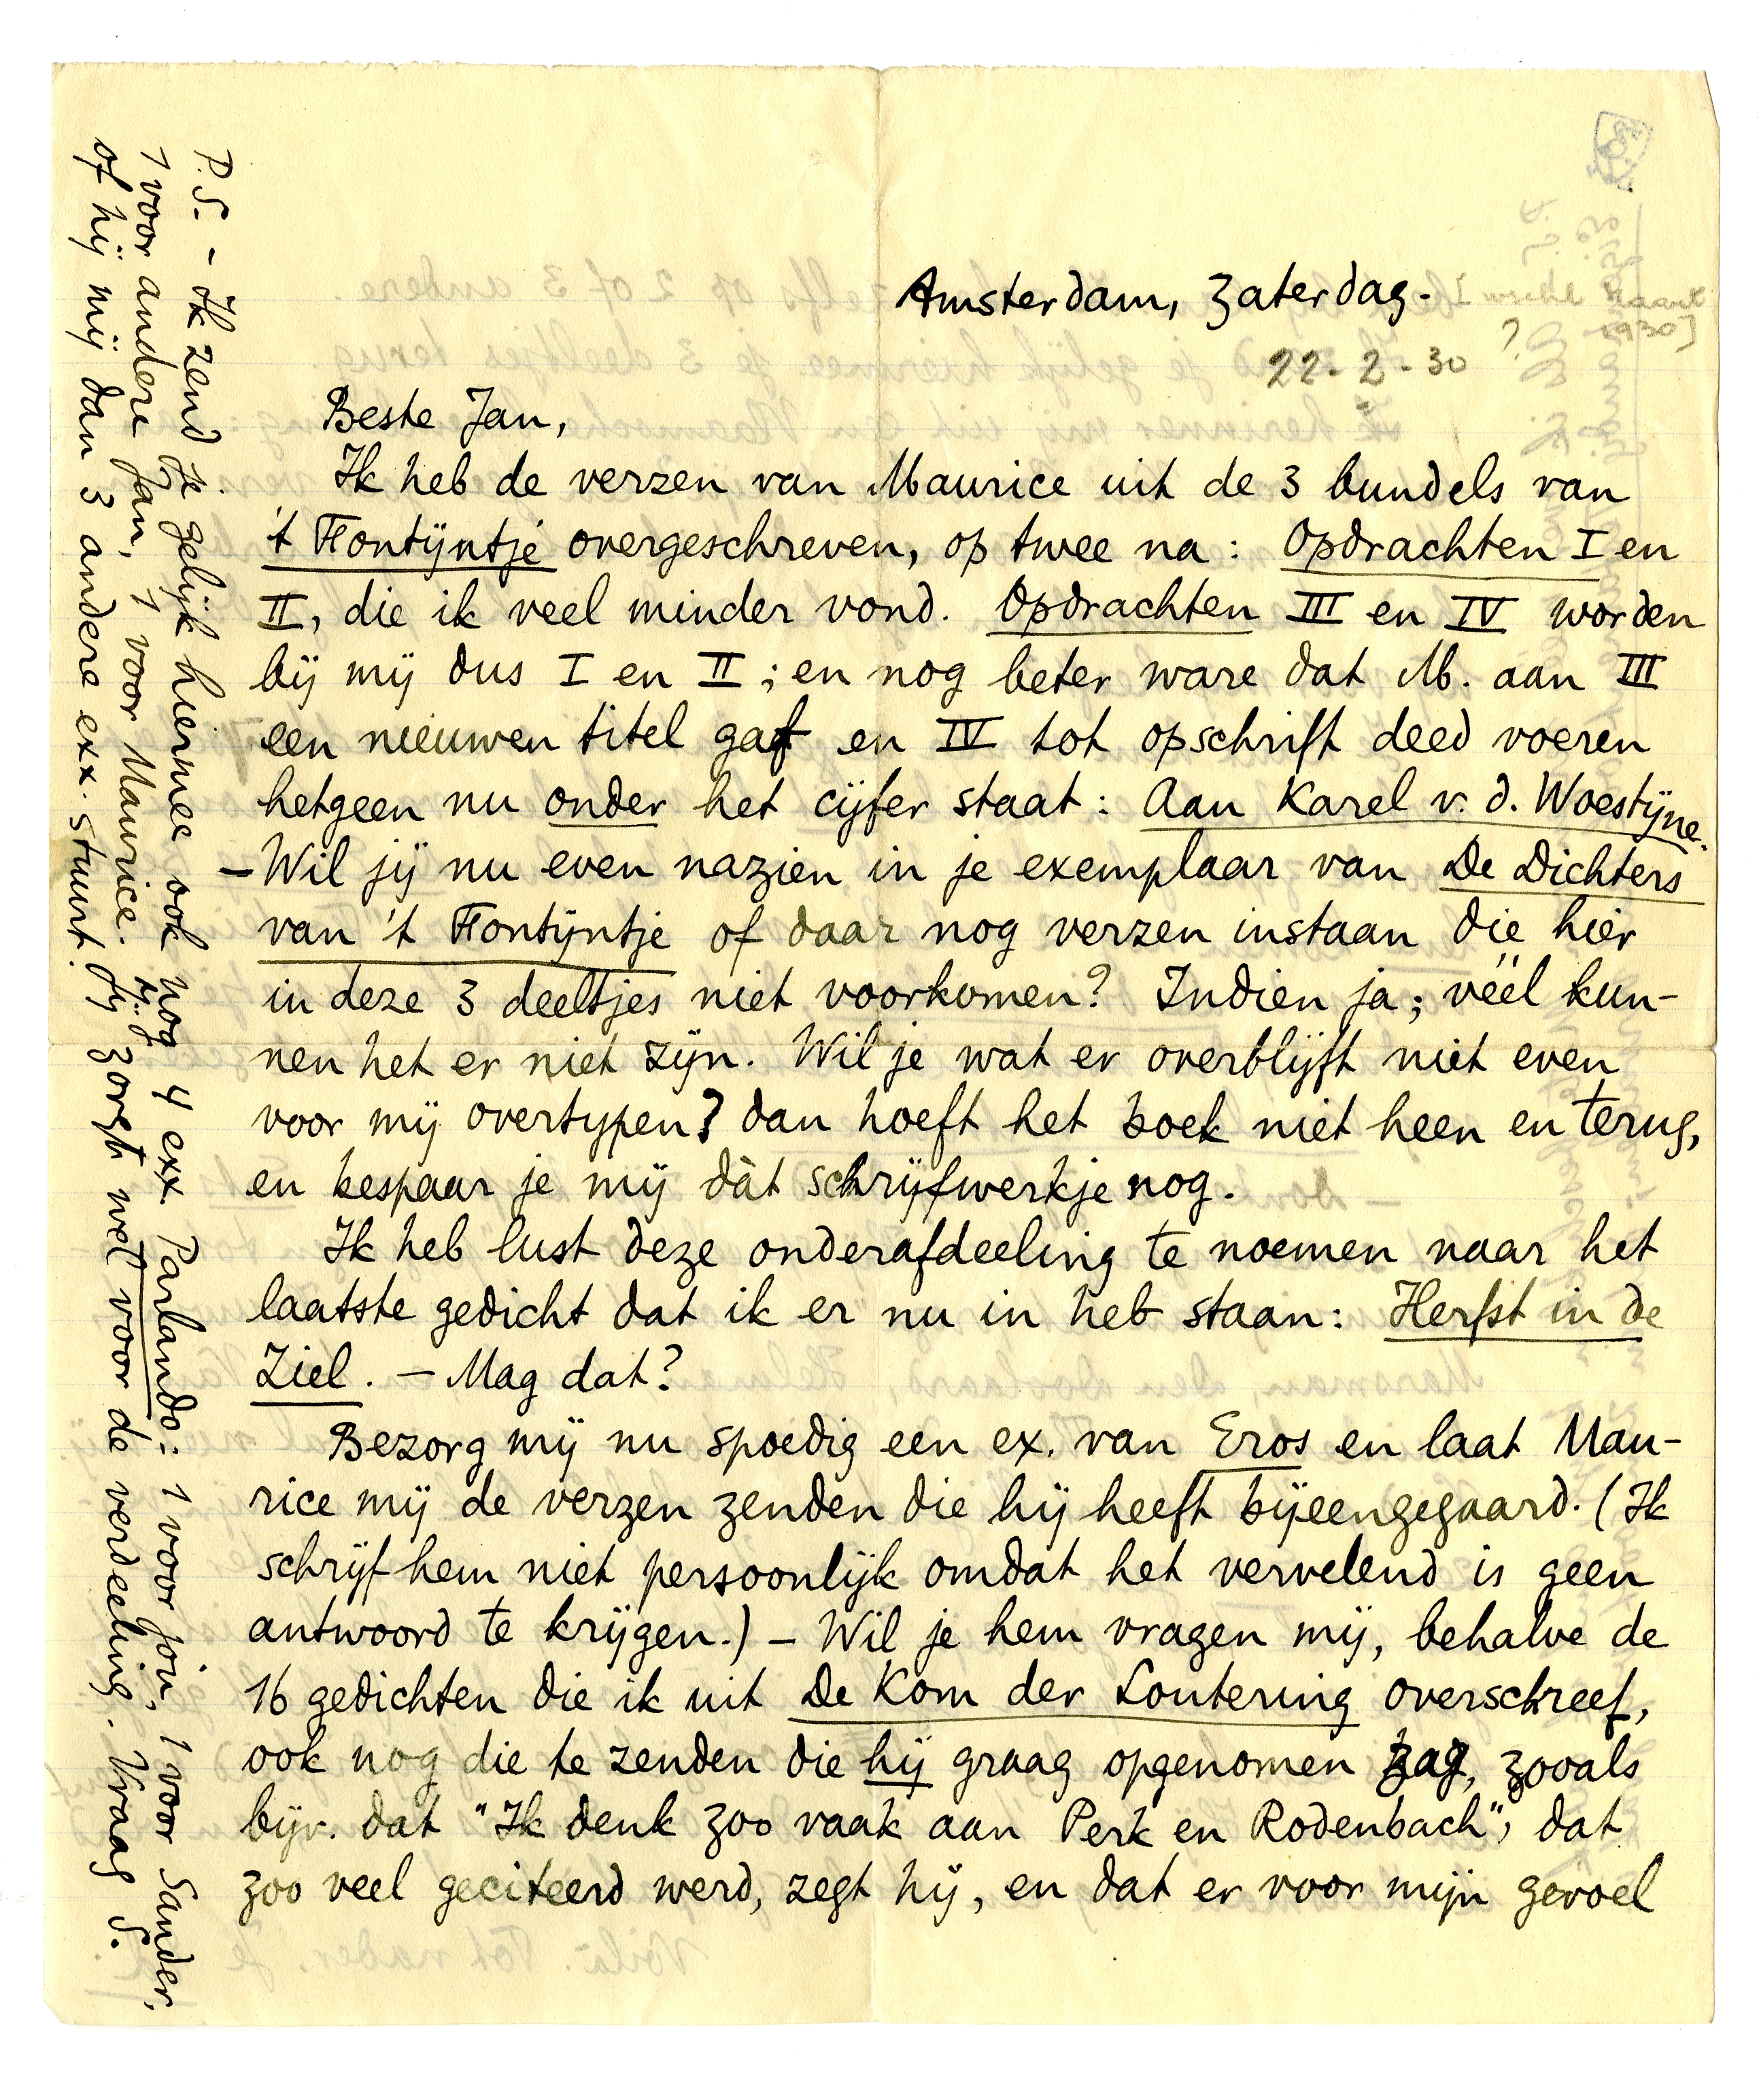 Amsterdam, Zaterdag.
[wschl Maart
1930]
?
22-2-30
Beste Jan,
Ik heb de verzen van Maurice uit de 3 bundels van
't Fontijntje overgeschreven, op twee na: Opdrachten I en
II, die ik veel minder vond. Opdrachten III en IV worden
bij mij dus I en II; en nog beter ware dat M. aan III
een nieuwen titel gaf en IV tot opschrift deed voeren
hetgeen nu onder het cijfer staat: Aan Karel v. d. Woestijne.
– Wil jij nu even nazien in je exemplaar van De Dichters
van 't Fontijntje of daar nog verzen instaan die hier
in deze 3 deeltjes niet voorkomen? Indien ja; véél kun-
nen het er niet zijn. Wil je wat er overblijft niet even
voor mij overtypen? dan hoeft het boek niet heen en terug,
en bespaar je mij dàt schrijfwerkje nog.
Ik heb lust deze onderafdeeling te noemen naar het
laatste gedicht dat ik er nu in heb staan: Herfst in de
Ziel. – Mag dat?
Bezorg mij nu spoedig een ex. van Eros en laat Mau-
rice mij de verzen zenden die hij heeft bijeengegaard. (Ik
schrijf hem niet persoonlijk omdat het vervelend is geen
antwoord te krijgen.) – Wil je hem vragen mij, behalve de
16 gedichten die ik uit De Kom der Loutering overschreef,
ook nog die te zenden die hij graag opgenomen zag, zooals
bijv. dat "Ik denk zoo vaak aan Perk en Rodenbach", dat
zoo veel geciteerd werd, zegt hij, en dat er voor mijn gevoel
P.S. – Ik zend je gelijk hiermee ook nog 4 exx. Parlando: 1 voor jou, 1 voor Sander,
1 voor andere Jan, 1 voor Maurice. Jij zorgt wel voor de verdeeling. Vraag S.
of hij mij dan 3 andere exx. stuurt.